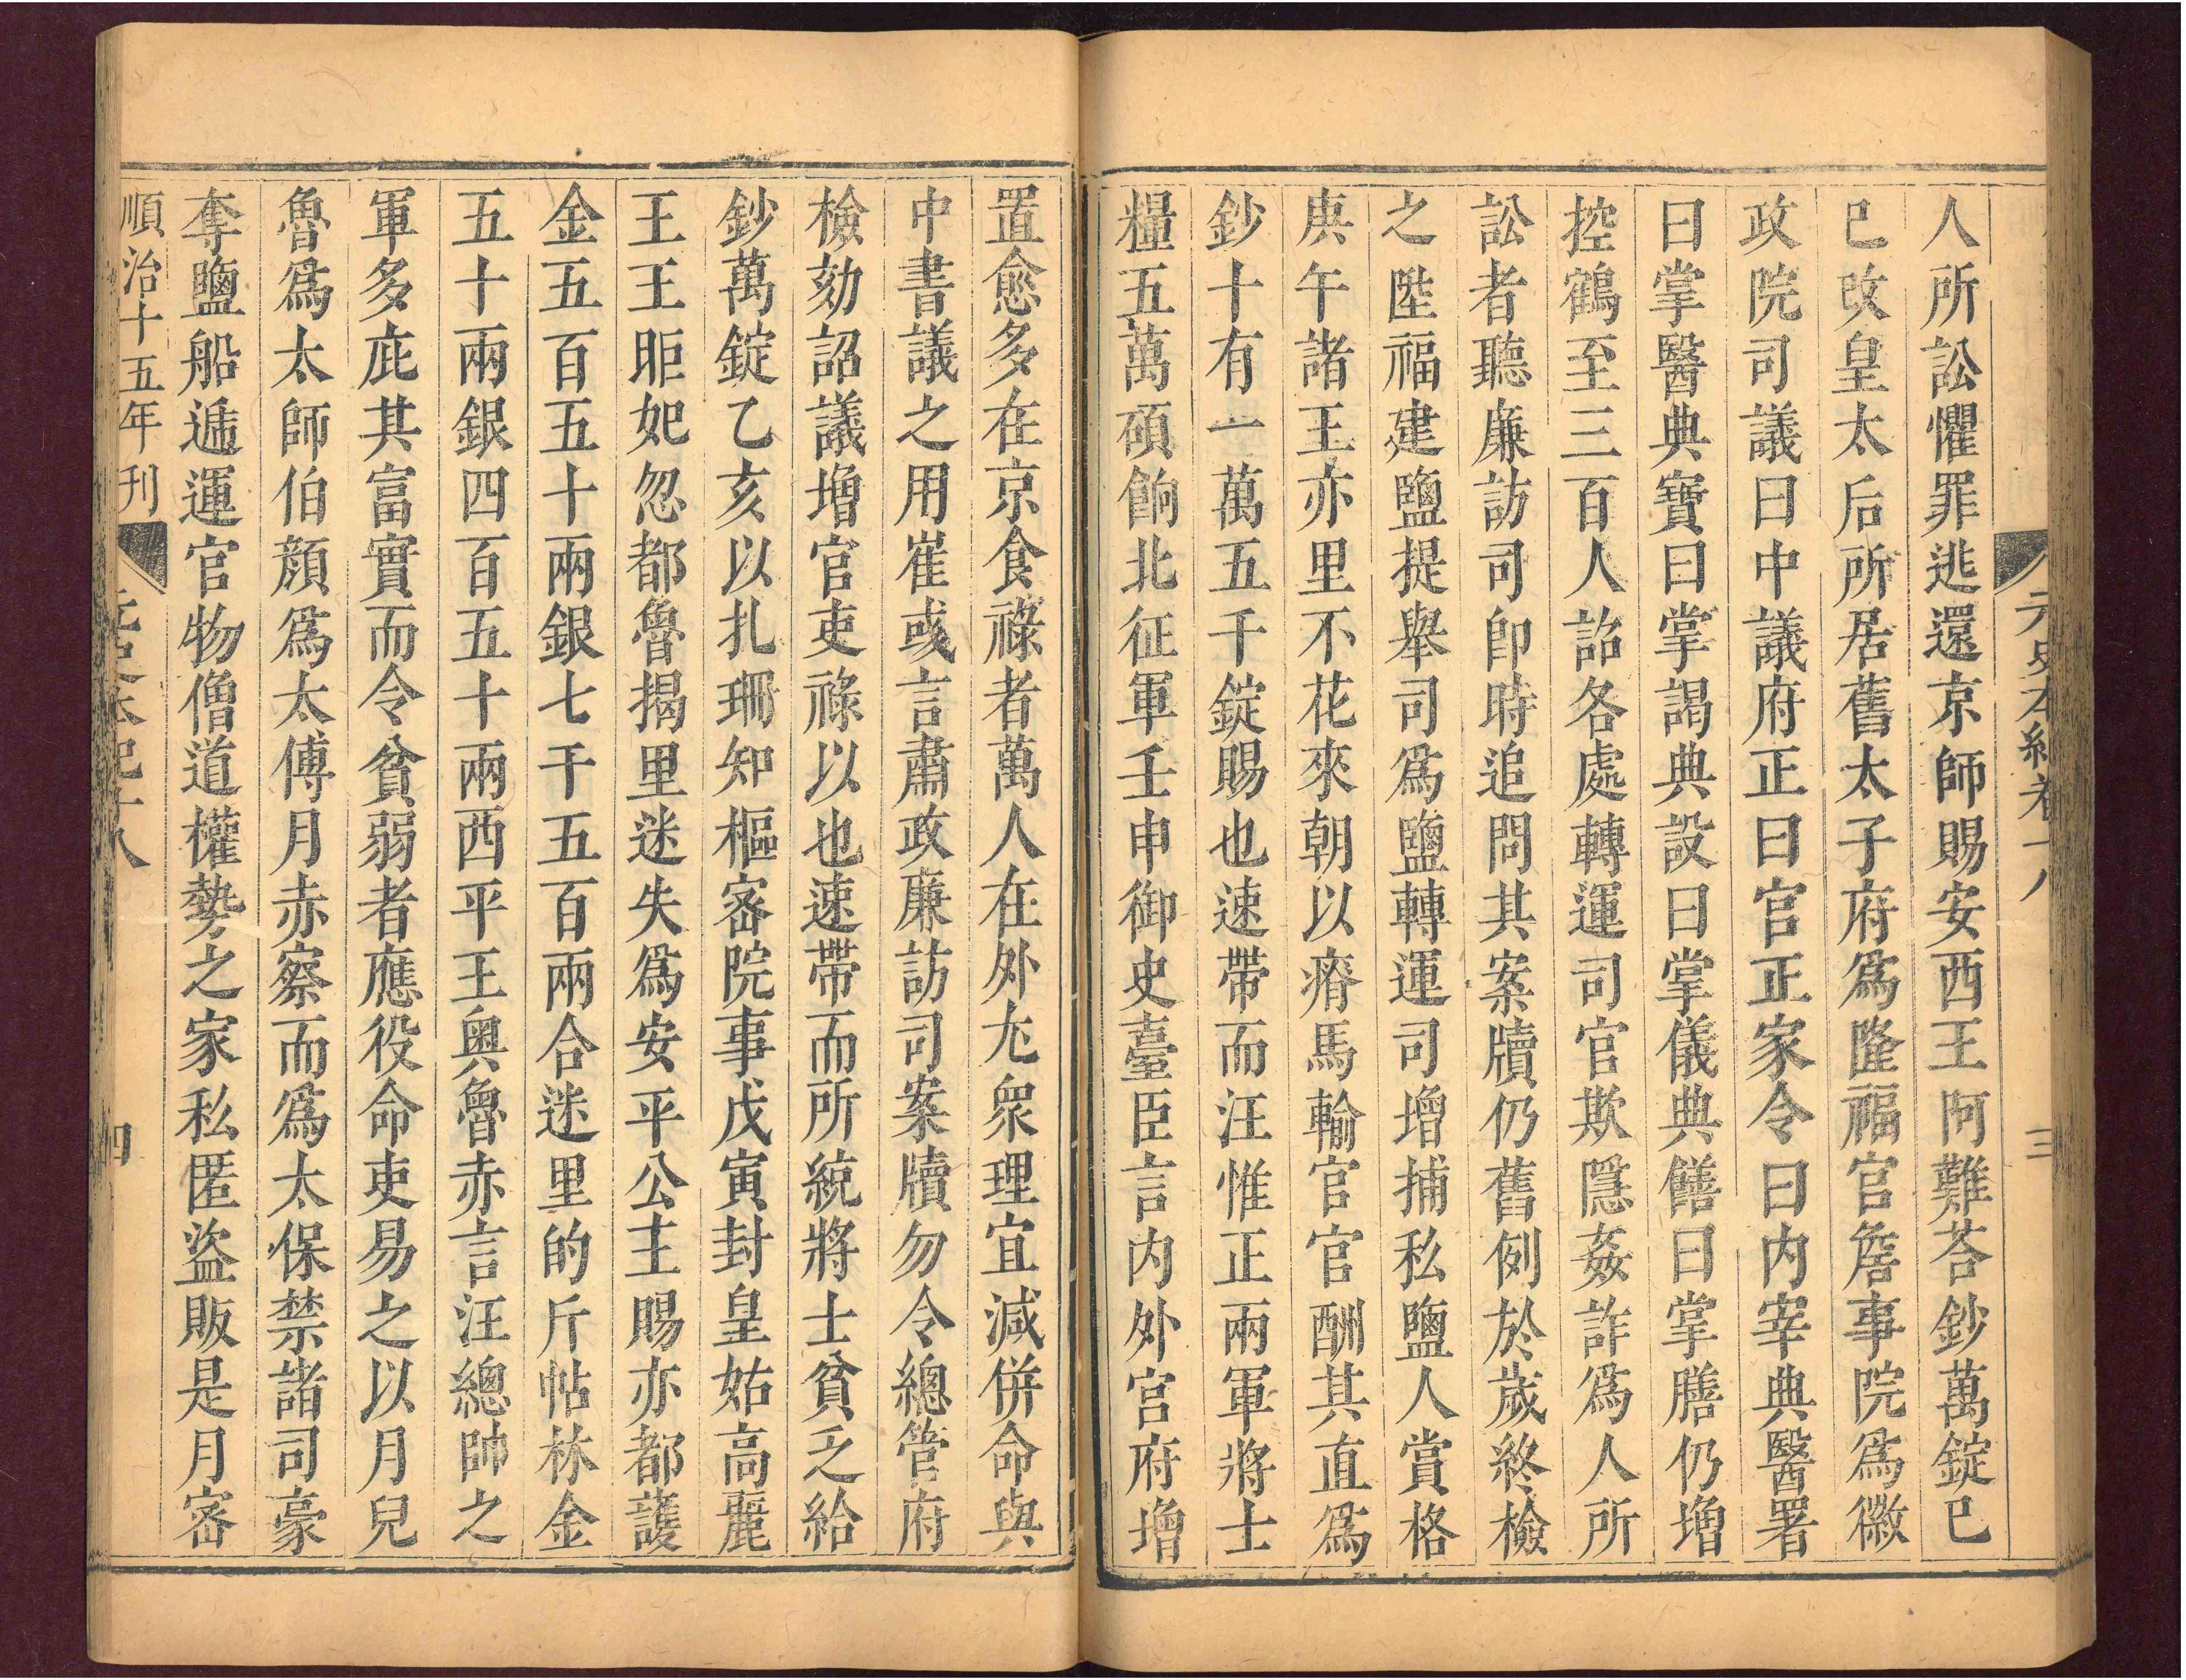 元史本紀卷十八 三
人所訟懼罪逃還京師賜安西王阿難荅鈔萬錠巳
巳改皇太后所居舊太子府爲隆福官詹事院爲徽
政院司議曰中議府正曰官正家令曰内宰典醫署
曰掌醫典寶曰掌謁典設曰掌儀典饍曰掌膳仍增
控鶴至三百人詔各處轉運司官欺隱姦詐爲人所
訟者聽廉訪司卽時追問其案牘仍舊例於歲終檢
之陞福建鹽提舉司爲鹽轉運司增捕私鹽人賞格
庚午諸王亦里不花來朝以瘠馬輸官官酬其直爲
鈔十有一萬五千錠賜也速帶而汪惟正兩軍將士
糧五萬碩餉北征軍壬申御史臺臣言内外官府增
置愈多在京食祿者萬人在外尢衆理宜減併命與
中書議之用崔彧言肅政廉訪司案牘勿令總管府
檢劾詔議增官吏祿以也速帶而所統將士貧乏給
鈔萬錠乙亥以扎珊知樞密院事戊寅封皇姑高麗
王王昛妃忽都魯揭里迷失爲安平公主賜亦都護
金五百五十兩銀七千五百兩合迷里的斤帖林金
五十兩銀四百五十兩西平王奥魯赤言汪總帥之
軍多庇其富實而令貧弱者應役命吏易之以月兒
魯爲太師伯顔爲太傅月赤察而爲太保禁諸司豪
奪鹽船遞運官物僧道權勢之家私匿盜販是月密
順治十五年刊 元史本紀十八 四